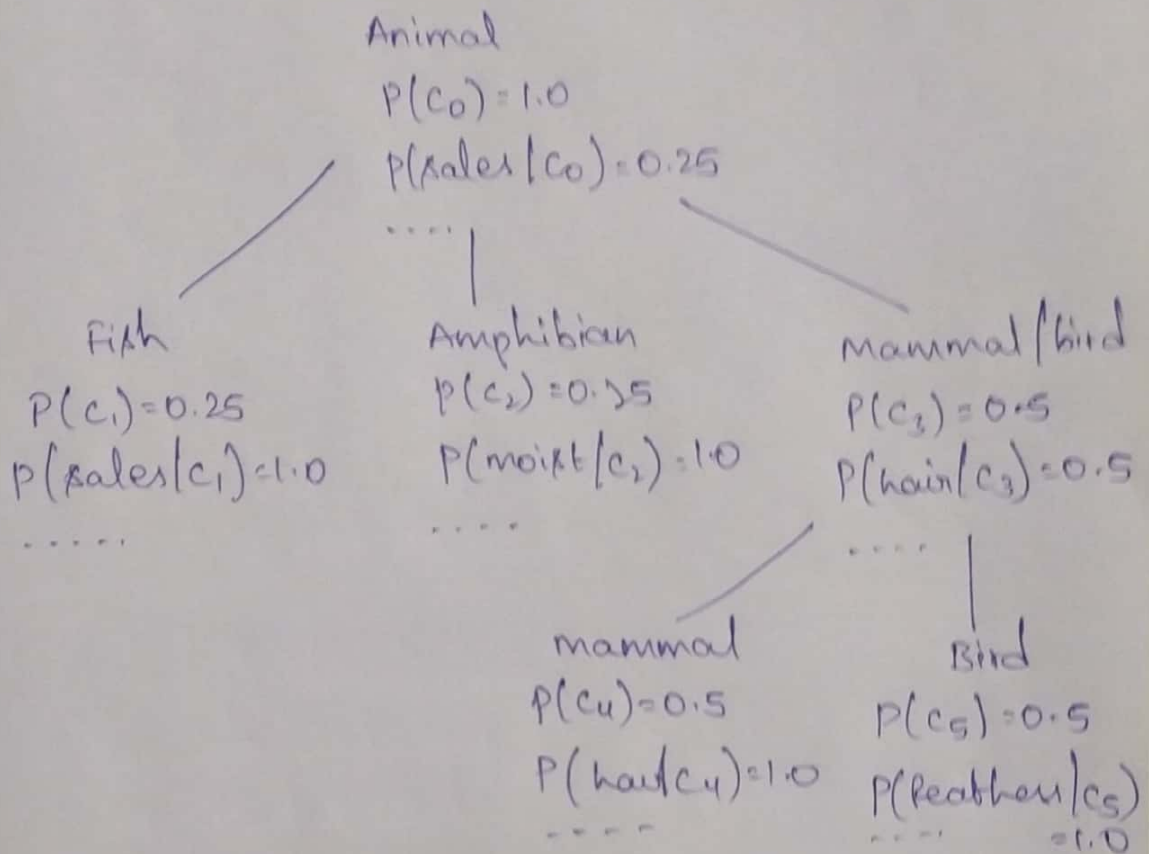 Animal
P(C0) = 1.0
P(scales/C0) = 0.25
....
Fish
P(C1) = 0.25
P(scales/C1) = 1.0
.....
Amphibian
P(C2) = 0.25
P(moist/C2) = 1.0
....
Mammal/bird
P(C3) = 0.5
P(hair/C3) = 0.5
....
mammal
P(C4) = 0.5
P(hair/C4) = 1.0
....
Bird
P(C5) = 0.5
P(feathers/C5)
= 1.0
....